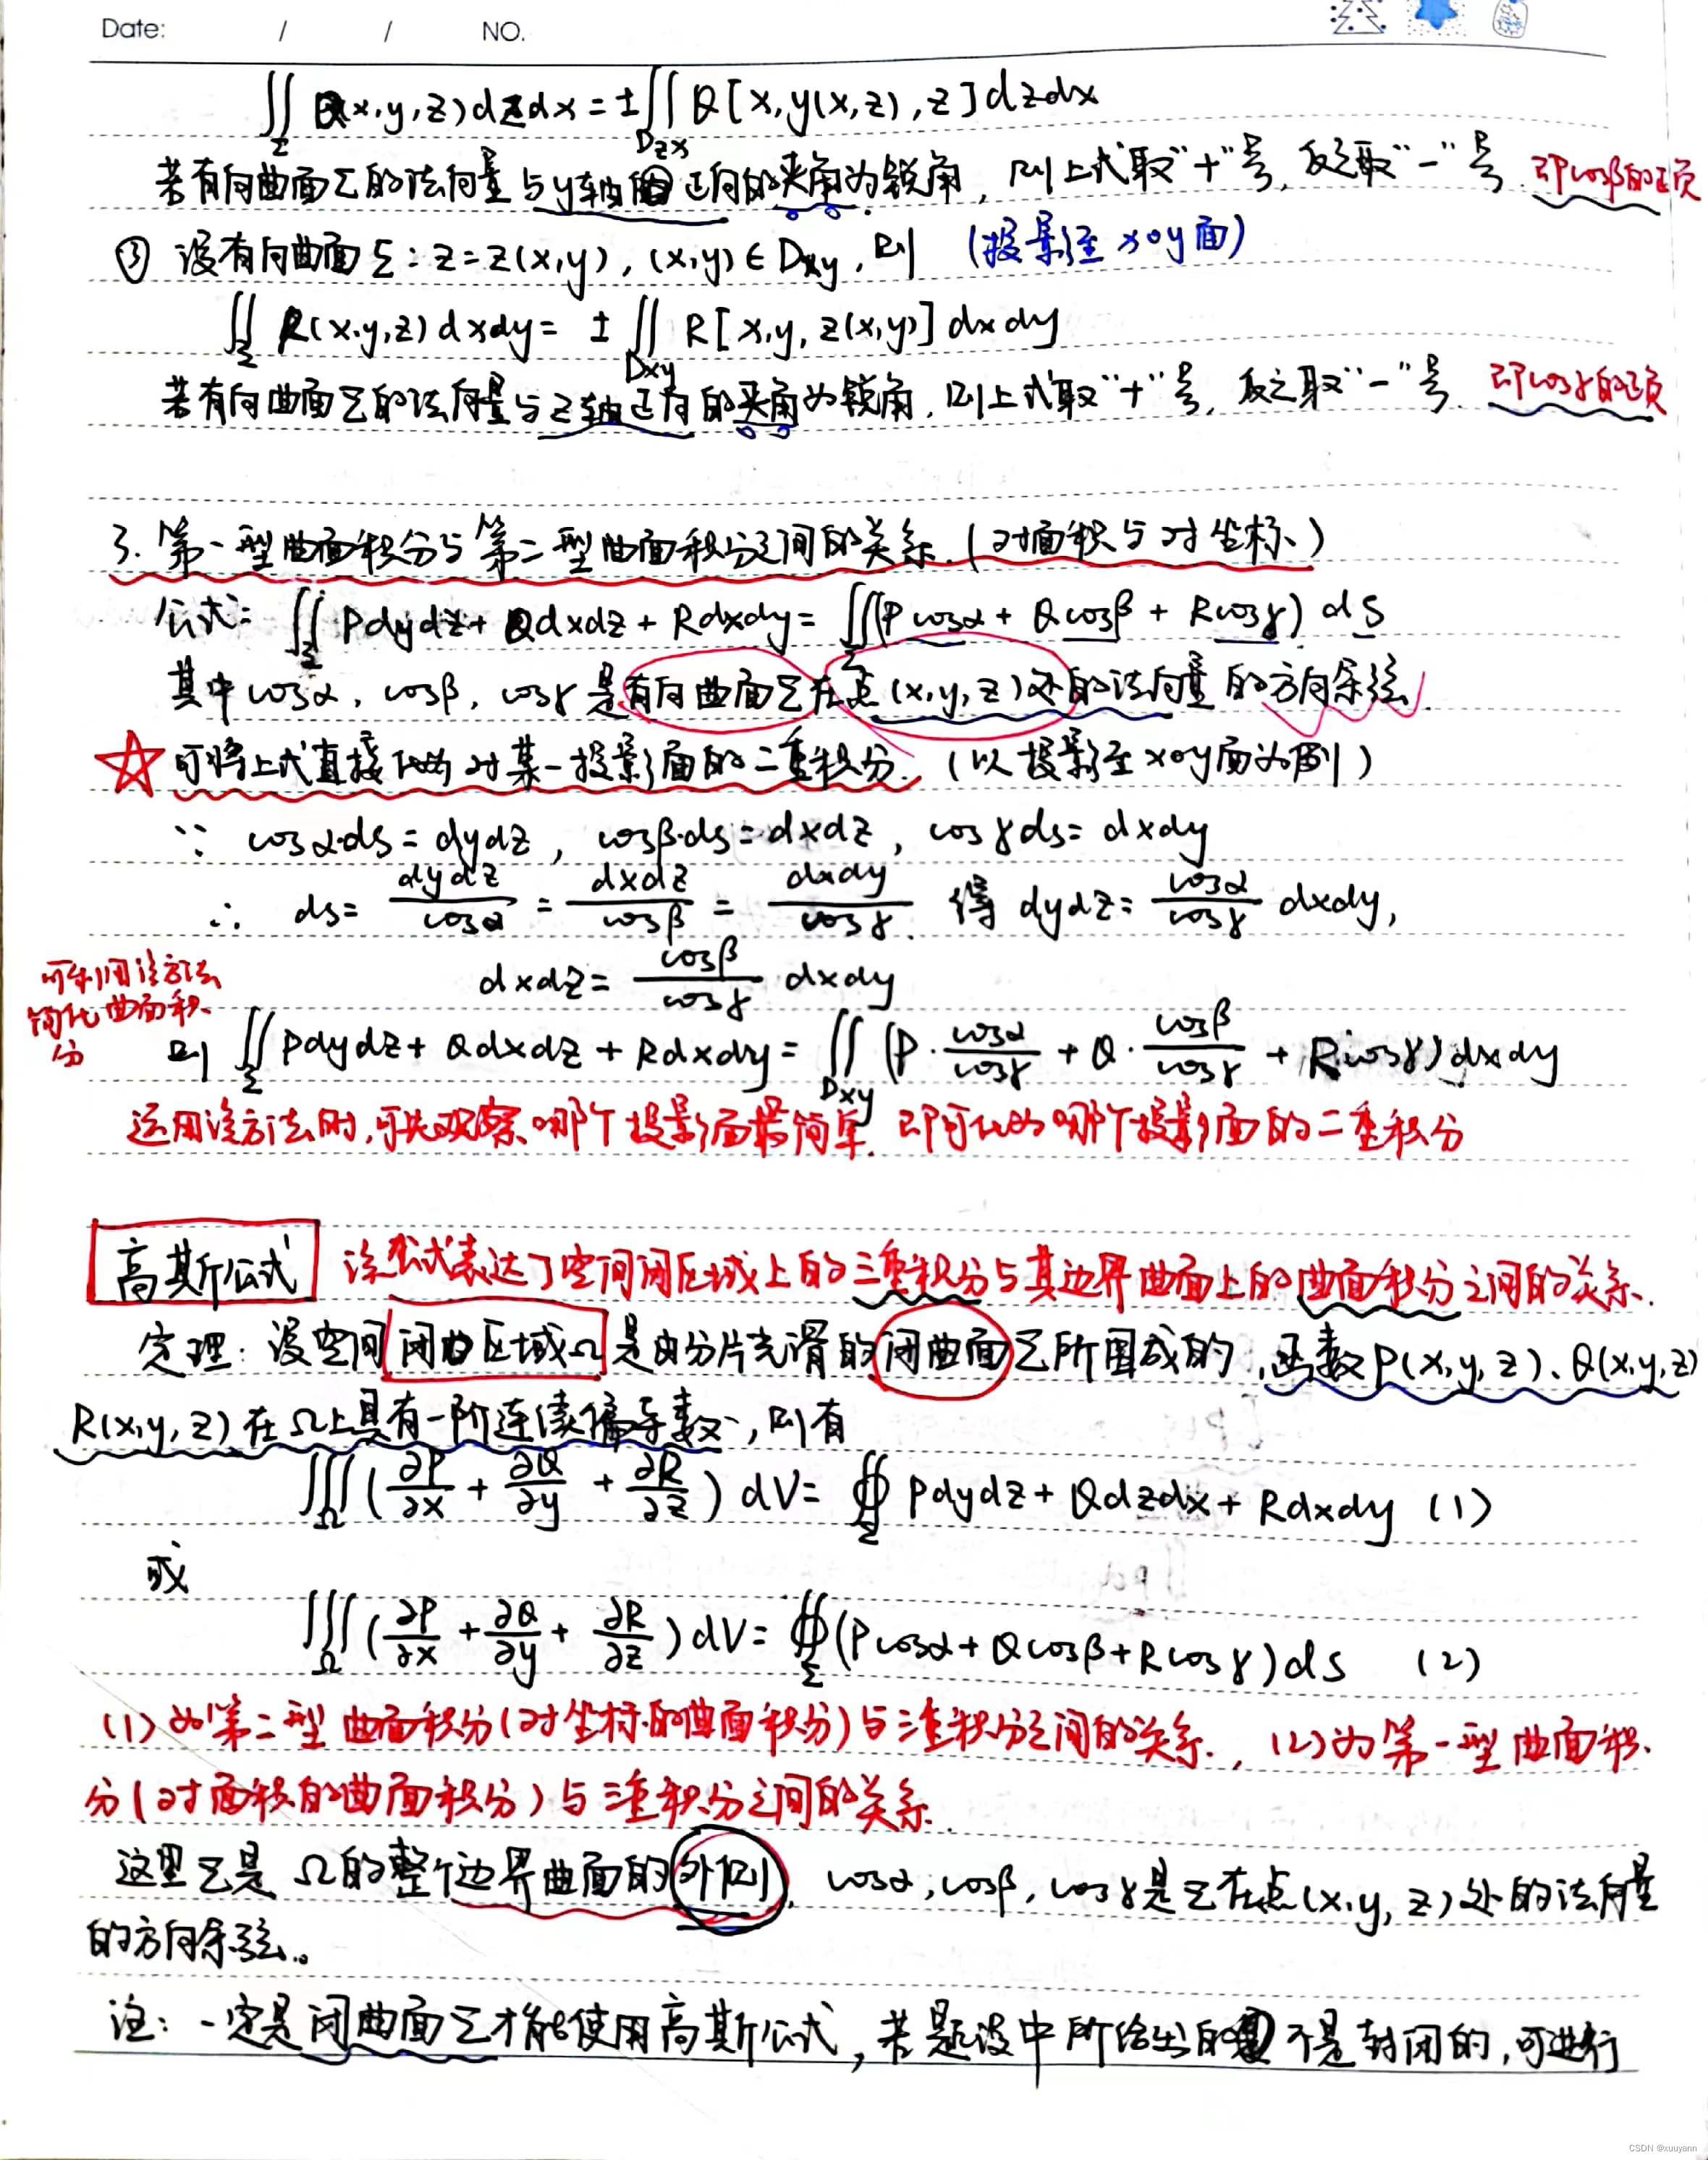 Date: / / NO.
∬_Σ Q(x,y,z)dzdx = ±∬_{Dzx} Q[x,y(x,z),z]dzdx
若有向曲面Σ的法向量与y轴正向的夹角为锐角,则上式取"+"号,反之取"-"号.即cosβ的正负
③ 设有向曲面Σ:z=z(x,y),(x,y)∈Dxy,则 (投影至xoy面)
∬_Σ R(x,y,z)dxdy = ±∬_{Dxy} R[x,y,z(x,y)]dxdy
若有向曲面Σ的法向量与z轴正向的夹角为锐角,则上式取"+"号,反之取"-"号.即cosγ的正负
3.第一型曲面积分与第二型曲面积分之间的关系.(对面积与对坐标)
公式:∬_Σ Pdydz+Qdxdz+Rdxdy=∬_Σ(Pcosα+Qcosβ+Rcosγ)dS
其中cosα,cosβ,cosγ是有向曲面Σ在点(x,y,z)处的法向量的方向余弦.
☆可将上式直接化为对某一投影面的二重积分.(以投影至xoy面为例)
∵ cosα·ds=dydz, cosβ·ds=dxdz, cosγds=dxdy
∴ ds=dydz/cosα=dxdz/cosβ=dxdy/cosγ. 得 dydz=cosα/cosγ dxdy,
dxdz=cosβ/cosγ·dxdy
可利用该方法
简化曲面积
分
则∬_Σ Pdydz+Qdxdz+Rdxdy=∬_{Dxy}(P·cosα/cosγ+Q·cosβ/cosγ+R·cosγ)dxdy
运用该方法时,可先观察哪个投影面最简单.即可化为哪个投影面的二重积分
高斯公式 该公式表达了空间闭区域上的三重积分与其边界曲面上的曲面积分之间的关系.
定理:设空间闭区域Ω是由分片光滑的闭曲面Σ所围成的,函数P(x,y,z)、Q(x,y,z)
R(x,y,z)在Ω上具有一阶连续偏导数,则有
∭_Ω(∂P/∂x+∂Q/∂y+∂R/∂z)dV=∯_Σ Pdydz+Qdzdx+Rdxdy (1)
或
∭_Ω(∂P/∂x+∂Q/∂y+∂R/∂z)dV=∯_Σ(Pcosα+Qcosβ+Rcosγ)ds (2)
(1)为第二型曲面积分(对坐标的曲面积分)与三重积分之间的关系.,(2)为第一型曲面积
分(对面积的曲面积分)与三重积分之间的关系.
这里Σ是Ω的整个边界曲面的外侧,cosα,cosβ,cosγ是Σ在点(x,y,z)处的法向量
的方向余弦.
注:一定是闭曲面Σ才能使用高斯公式,若题设中所给出的不是封闭的,可进行
CSDN @xuuyann